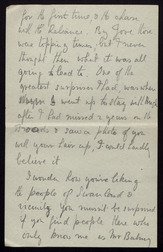 for the first time & the
with the Reliance. By Jove how
was topping times, but I never
thought then what it was all
going to lead to. One of the
greatest surprises I had, was when
I went up to stay with Hugh
after I had missed 2 years on the
& saw a photo of you
with your hair up, I could hardly
believe it.
I wonder how you're taking
to people of &
vicinity. You mustn't be surprised
if you find people here who
only know me as Mr